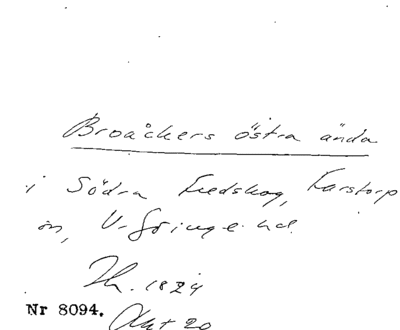 Broåkers östra ända
i Södra Fredskog, Karstorp
sn, V. Göinge hd.
Th. 1824
Nr 8094. Akt 20